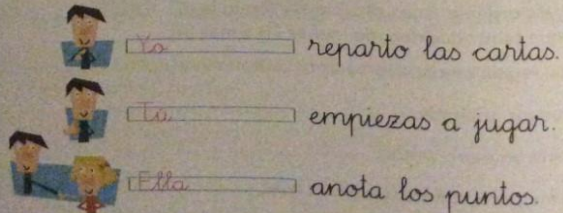 Yo reparto las cartas.
Tú empiezas a jugar.
Ella anota los puntos.